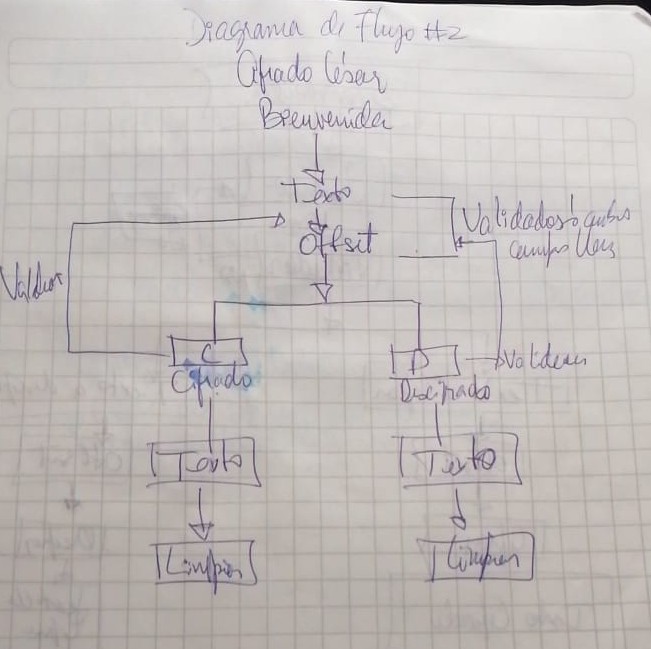 Diagrama de Flujo #2
Cifrado César
Bienvenida
Texto
Offset
Validados ambos
campos
Validar
C
Cifrado
D
Descifrado
Validar
Texto
Texto
Limpiar
Limpiar